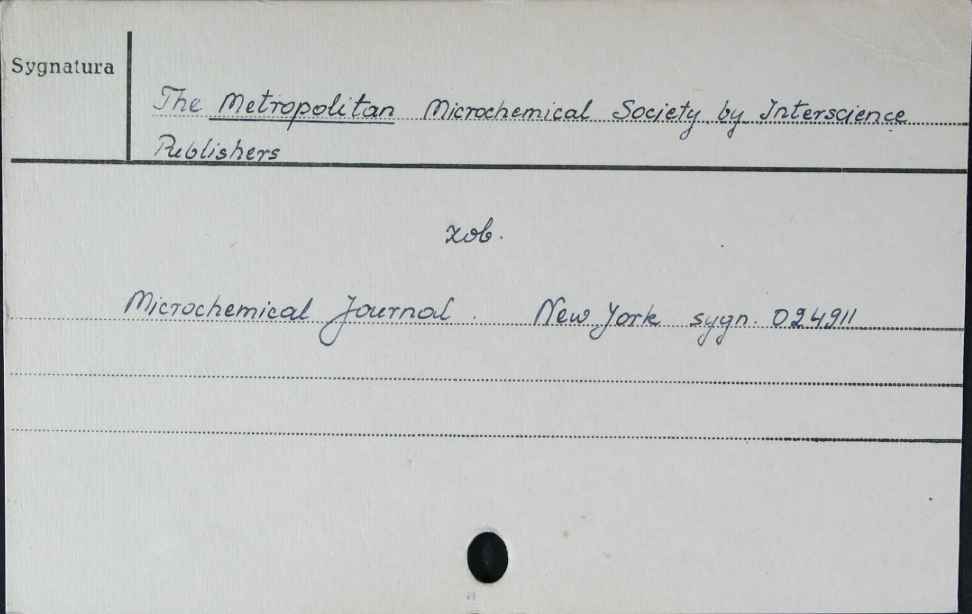 Sygnatura
The Metropolitan Microchemical Society by Interscience
Publishers
zob.
Microchemical Journal. New York sygn. 024911